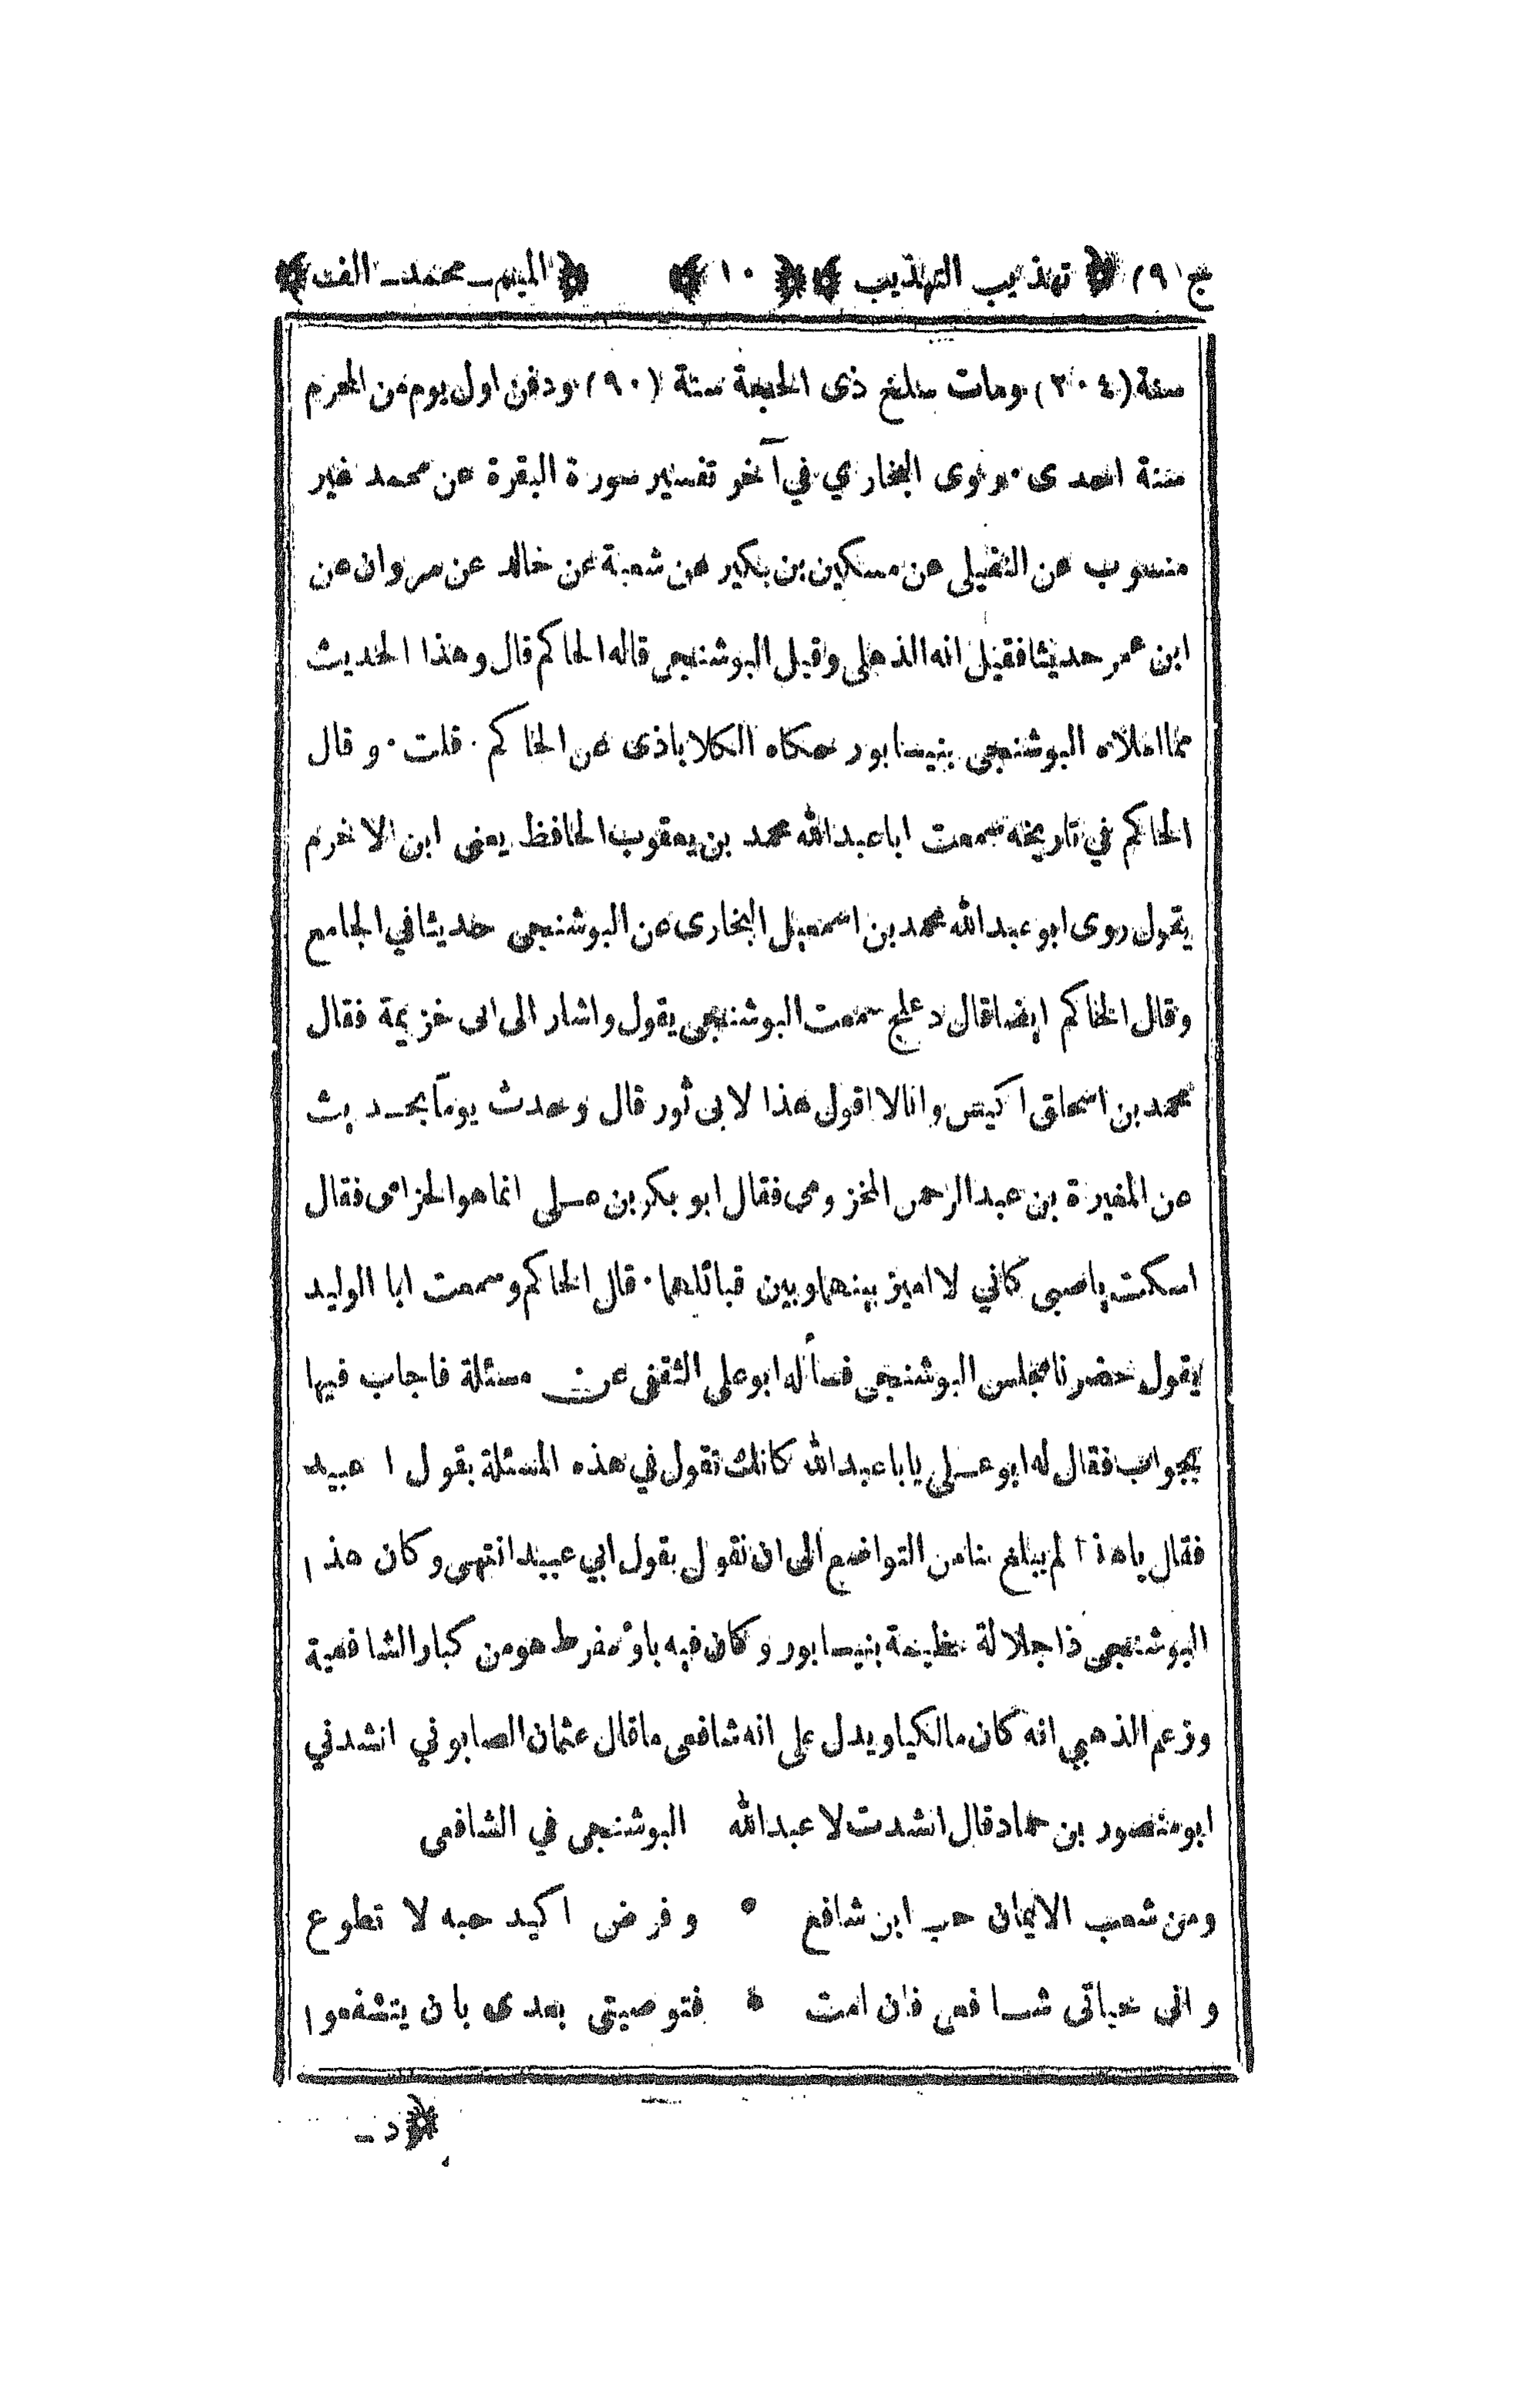 ج (٩) ﴿ تهذيب التهذيب ﴾ ﴿ ١٠ ﴾ ﴿ الميم ـ محمد ـ الف ﴾
سنة (٢٠٤) ومات سلخ ذى الحجة سنة (٩٠) ودفن اول يوم من المحرم
سنة احدى · وروى البخاري في آخر تفسير سورة البقرة عن محمد غير
منسوب عن النفيلى عن مسكين بن بكير عن شعبة عن خالد عن مروان عن
ابن عمر حديثا فقيل انه الذهلى وقيل البوشنجى قاله الحاكم قال وهذا الحديث
مما املاه البوشنجى بنيسابور حكاه الكلاباذى عن الحاكم · قلت · وقال
الحاكم في تاريخه سمعت ابا عبد الله محمد بن يعقوب الحافظ يعنى ابن الاخرم
يقول روى ابو عبد الله محمد بن اسمعيل البخارى عن البوشنجى حديثا في الجامع
وقال الحاكم ايضا قال دعلج سمعت البوشنجى يقول واشار الى ابى خزيمة فقال
محمد بن اسحاق اكيس وانا لا اقول هذا لابى ثور قال وحدث يوماً بحديث
عن المغيرة بن عبد الرحمن المخزومى فقال ابو بكر بن على انما هو الحزامى فقال
اسكت ياصبى كاني لا اميز بينهما وبين قبائلهما · قال الحاكم وسمعت ابا الوليد
يقول حضرنا مجلس البوشنجى فسأله ابو على الثقفى عن مسئلة فاجاب فيها
بجواب فقال له ابو على يا با عبد الله كانك تقول في هذه المسئلة بقول ا عبيد
فقال ياهذا لم يبلغ بنا من التواضع الى ان نقول بقول ابي عبيد انتهى وكان هذا
البوشنجى ذا جلالة عظيمة بنيسابور وكان فيه باوٌ مفرط هو من كبار الشافعية
وزعم الذهبي انه كان مالكيا ويدل على انه شافعى ما قال عثمان الصابوني انشدني
ابو منصور بن حماد قال انشدت لا عبد الله البوشنجى في الشافعى
ومن شعب الايمان حب ابن شافع ٥ وفرض اكيد حبه لا تطوع
وانى حياتى شافعى فان امت ٥ فتوصيتى بعدى بان يتشفعوا
﴿ د ـ